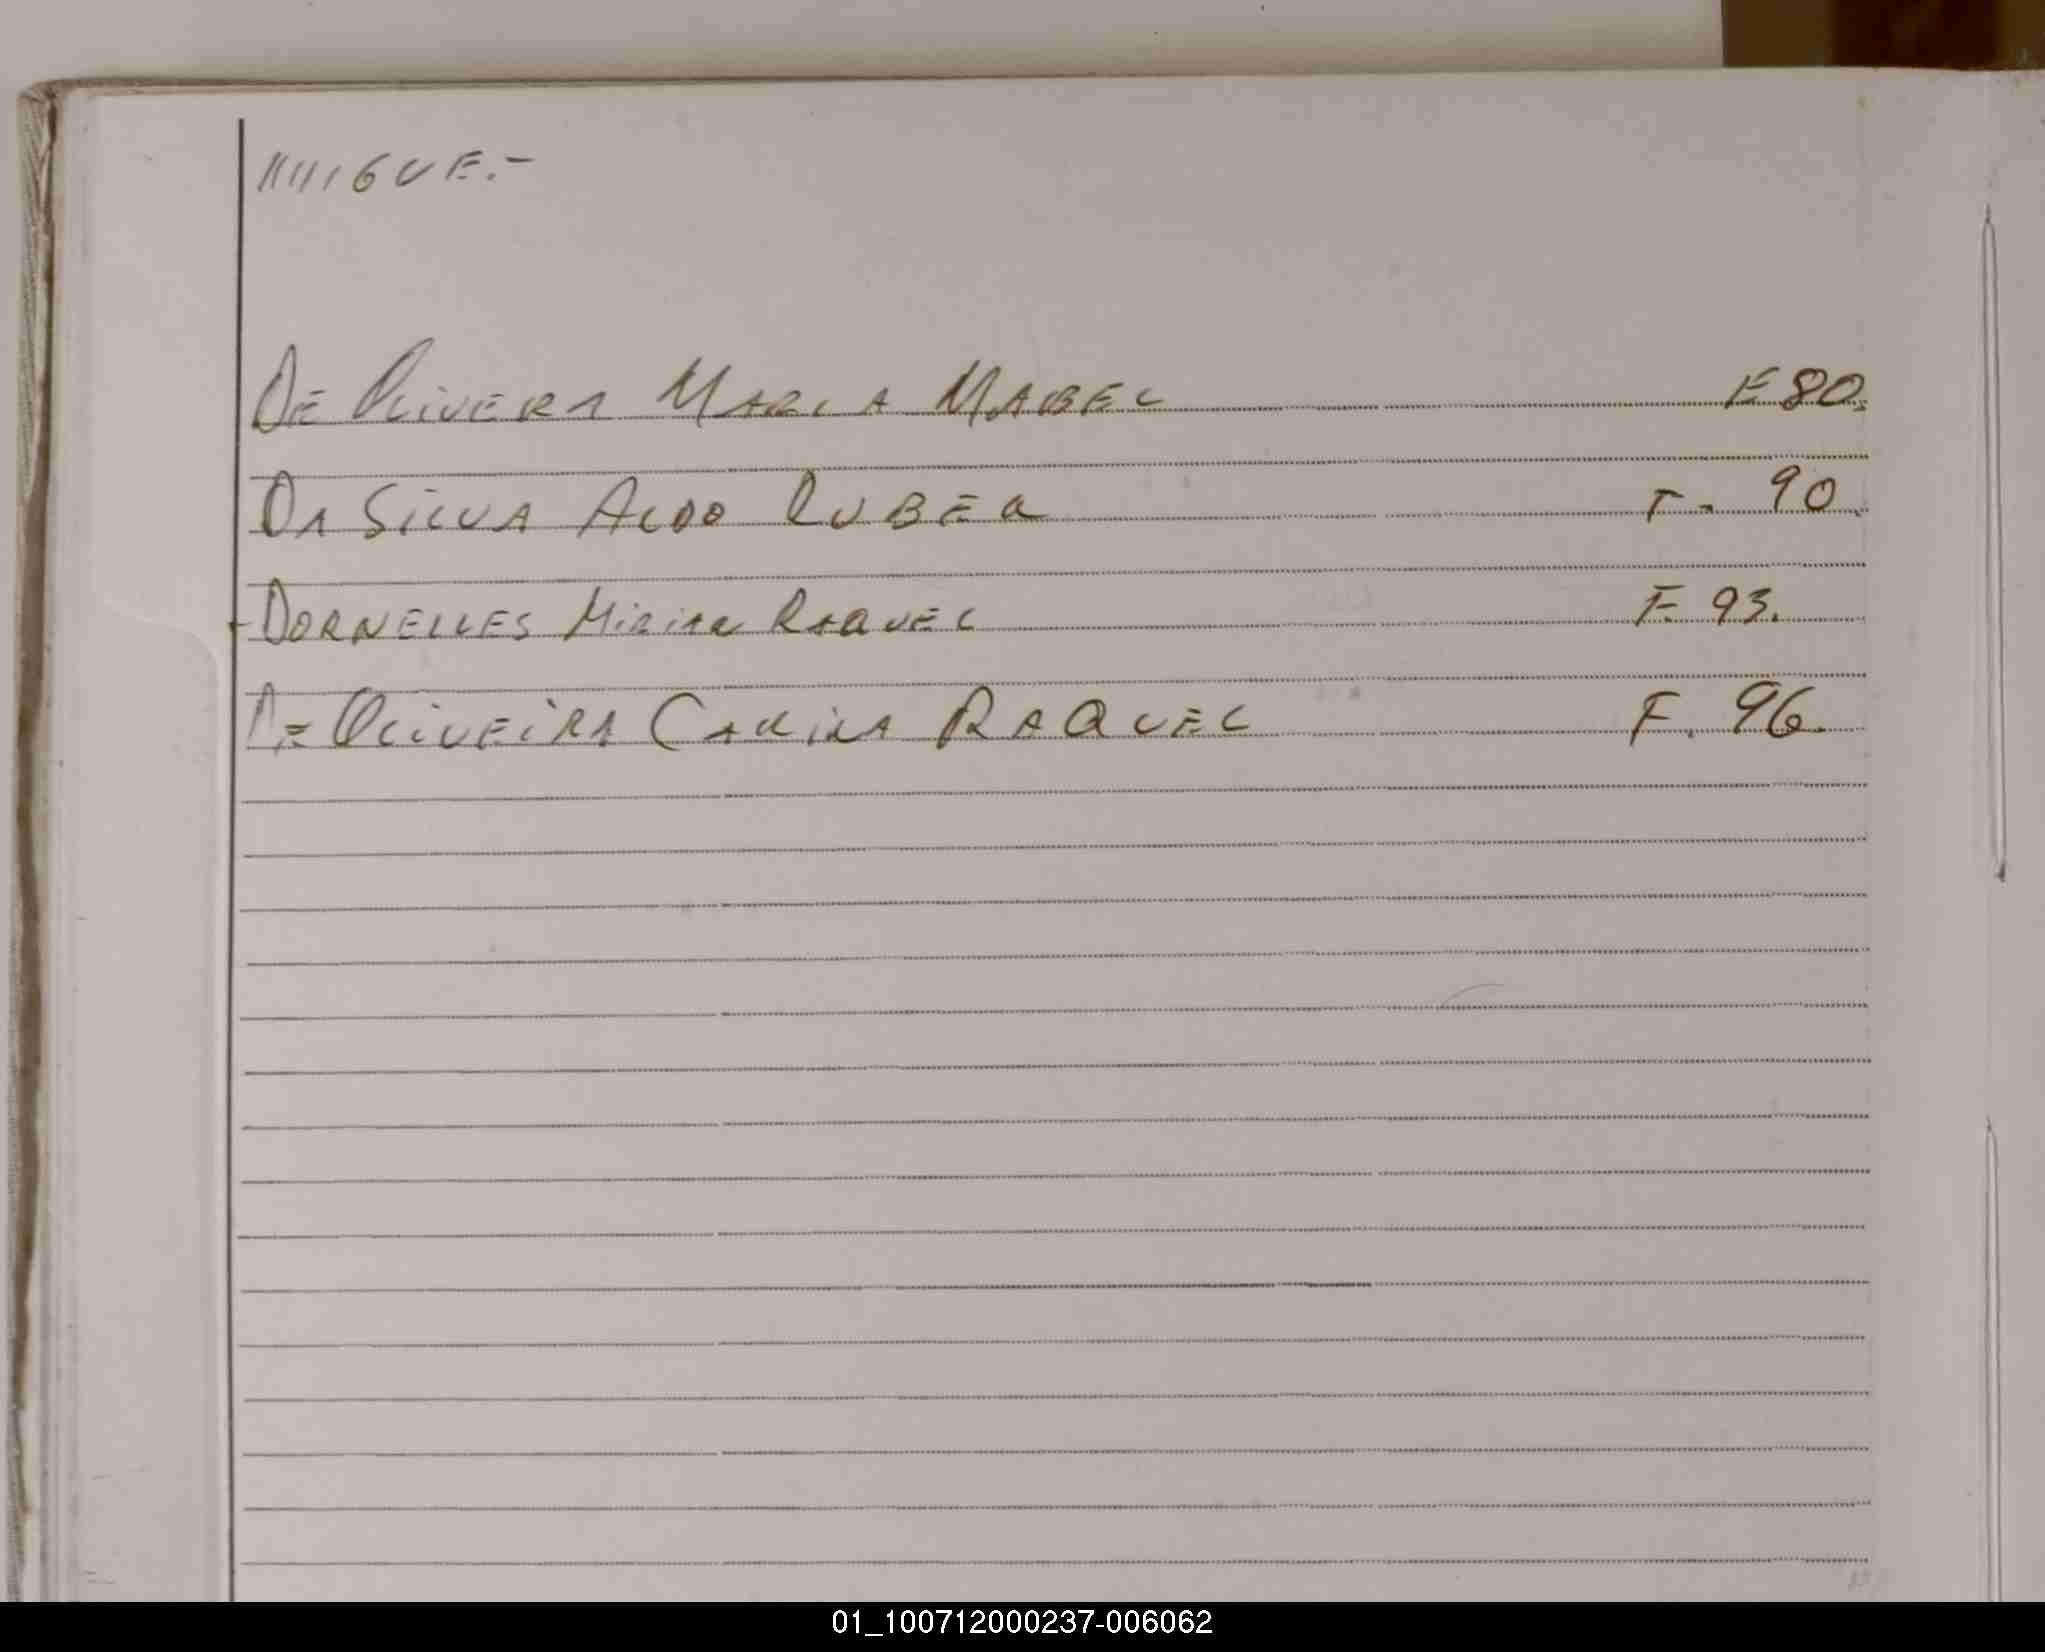 De Olivera Maria Mabel F 80.
Da Silva Aldo Rubea F. 90.
Dornelles Mirian Raquel F. 93.
De Oliveira Carina Raquel F. 96.
01_100712000237-006062